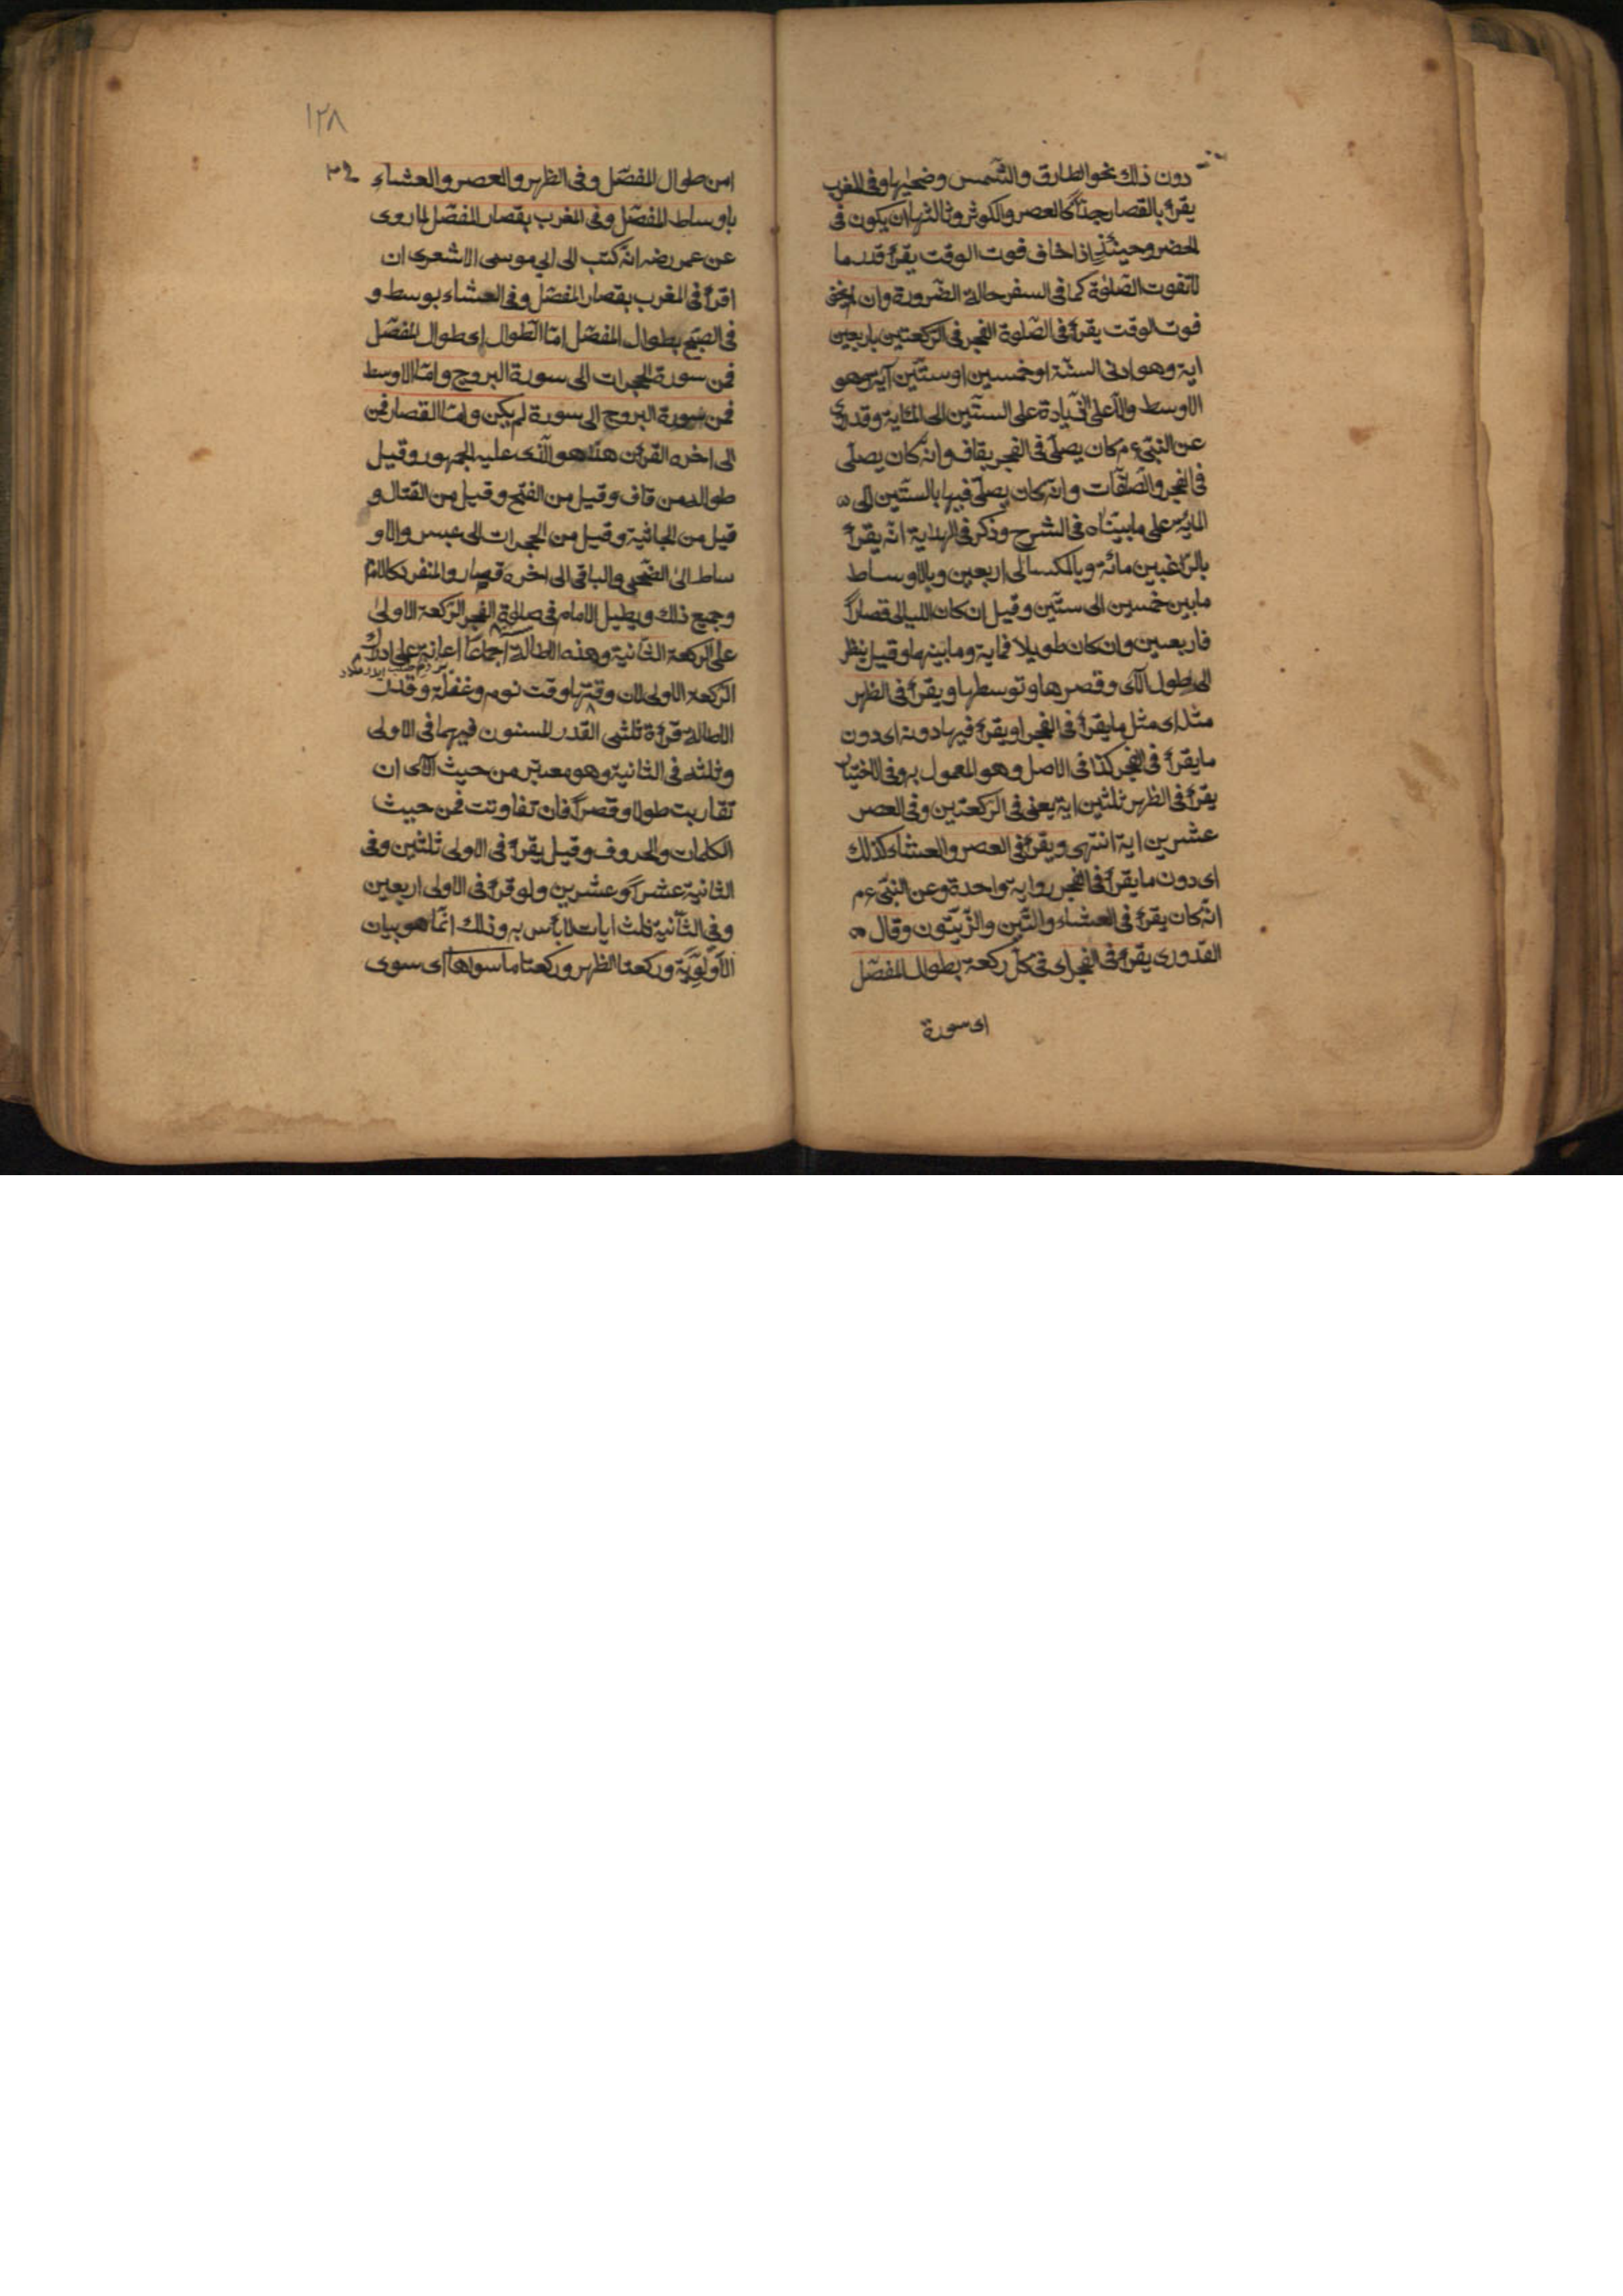 دون ذلك نحو الطارق والشمس وضحيها وفى المغرب
يقرأ بالقصار جدّاً كالعصر والكوثر وثالثها ان يكون فى
الحضر وحينئذٍ اذا خاف فوت الوقت يقرأ قدر ما
لا تفوت الصّلوة كما فى السفر حالة الضّرورة وان لم يخف
فوت الوقت يقرأ فى الصّلوة الفجر فى الركعتين باربعين
اية وهو ادنى السنّة او خمسين او ستّين آية وهو
الاوسط والاعلى الزيادة على الستّين الى المائة وقد روى
عن النبىّ ء م كان يصلّى فى الفجر بقاف وانه كان يصلّى
فى الفجر والصّافّات وانه كان يصلّى فيها بالستّين الى
المائة على ما بيّنّاه فى الشرح وذكر فى الهداية انّه يقرأ
بالرّاغبين مائة وبالكسالى اربعين وبالاوساط
ما بين خمسين الى ستّين وقيل ان كان الليالى قصاراً
فاربعين وان كان طويلا فماية وما بينها وقيل ينظر
الى طول الآى وقصرها وتوسطها ويقرأ فى الظهر
مثله اى مثل ما يقرأ فى الفجر او يقرأ فيها دونه اى دون
ما يقرأ فى الفجر كذا فى الاصل وهو المعمول به وفى الاختيار
يقرأ فى الظهر ثلثين اية يعنى فى الركعتين وفى العصر
عشرين اية انتهى ويقرأ فى العصر والعشاء كذلك
اى دون ما يقرأ فى الفجر رواية واحدة وعن النبىّ ء م
انّه كان يقرأ فى العشاء والتّين والزّيتون وقال
القدورى يقرأ فى الفجر اى فى كلّ ركعة بطوال المفصّل
اى سورة
١٢٨
امن طوال المفصّل وفى الظهر والعصر والعشاء
باوساط المفصّل وفى المغرب بقصار المفصّل لما روى
عن عمر رضه انّه كتب الى ابى موسى الاشعرى ان
اقرأ فى المغرب بقصار المفصّل وفى العشاء بوسط و
فى الصبح بطوال المفصّل امّا الطوال اى طوال المفصّل
فمن سورة الحجرات الى سورة البروج وامّا الاوسط
فمن سورة البروج الى سورة لم يكن وامّا القصار فمن
الى اخره القرآن هذا هو الّذى عليه الجمهور وقيل
طواله من قاف وقيل من الفتح وقيل من القتال و
قيل من الجاثية وقيل من الحجرات الى عبس والاو
ساط الى الضحى والباقى الى اخره قصار والمنفرد كالامام
وجميع ذلك ويطيل الامام فى صلوة الفجر الركعة الاولى
على الركعة الثانية وهذه الاطالة اجماعا اعانة على ادراك
الركعة الاولى لان وقتها وقت نوم وغفلة وقدر
الاطالة قرأة ثلثى القدر المسنون فيهما فى الاولى
وثلثه فى الثانية وهو معتبر من حيث الآى ان
تقاربت طولا وقصراً فان تفاوتت فمن حيث
الكلمات والحروف وقيل يقرأ فى الاولى ثلثين وفى
الثانية عشراً وعشرين ولو قرأ فى الاولى اربعين
وفى الثانية ثلث ايات لا بأس به وذلك انّما هو بيان
الاولوّية وركعتا الظهر وركعتا ما سواها اى سوى